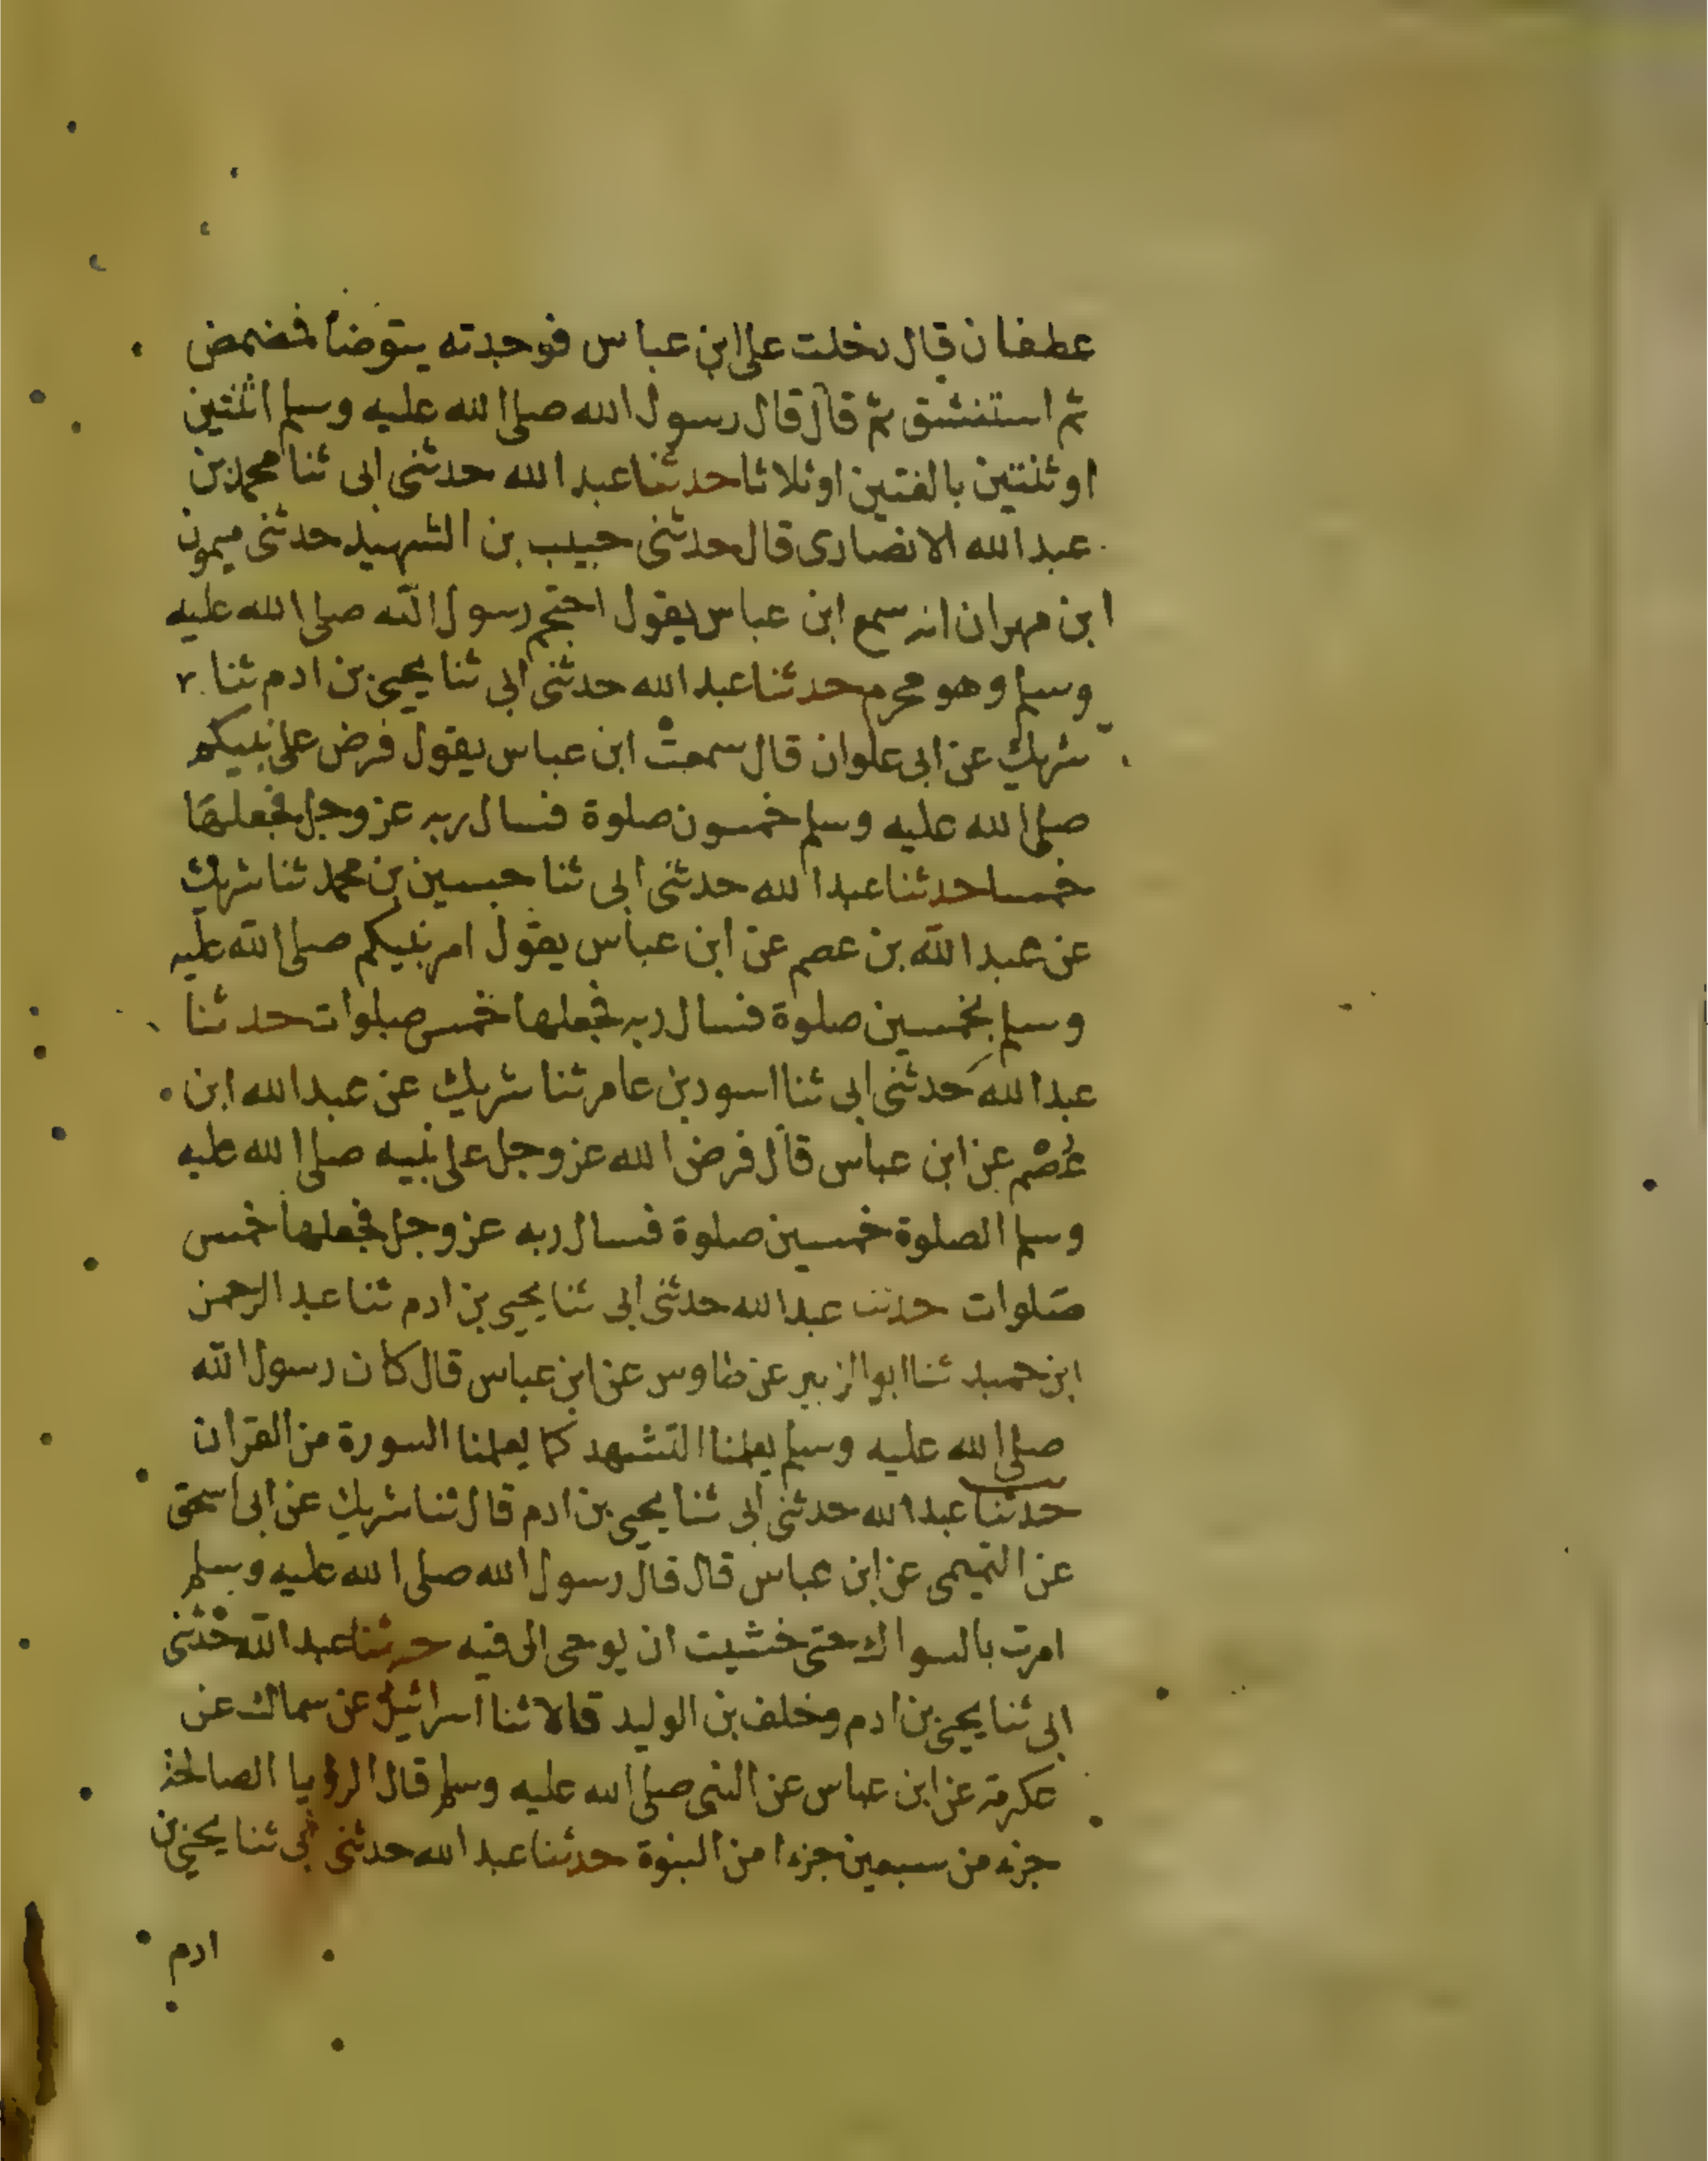 عطفان قال دخلت على ابن عباس فوجدته يتوضا فمضمض
ثم استنشق ثم قال قال رسول الله صلى الله عليه وسلم اثنتين
او ثنتين بالغتين او ثلاثا حدثنا عبد الله حدثنى ابى ثنا محمد بن
عبد الله الانصارى قال حدثنى حبيب بن الشهيد حدثنى ميمون
ابن مهران انه سمع ابن عباس يقول احتجم رسول الله صلى الله عليه
وسلم وهو محرم حدثنا عبد الله حدثنى ابى ثنا يحيى بن ادم ثنا
شريك عن ابى علوان قال سمعت ابن عباس يقول فرض على نبيكم
صلى الله عليه وسلم خمسون صلوة فسال ربه عز وجل فجعلها
خمسا حدثنا عبد الله حدثنى ابى ثنا حسين بن محمد ثنا شريك
عن عبد الله بن عصم عن ابن عباس يقول امر نبيكم صلى الله عليه
وسلم بخمسين صلوة فسال ربه فجعلها خمس صلوات حدثنا
عبد الله حدثنى ابى ثنا اسود بن عامر ثنا شريك عن عبد الله ابن
عُصْم عن ابن عباس قال فرض الله عز وجل على نبيه صلى الله عليه
وسلم الصلوة خمسين صلوة فسال ربه عز وجل فجعلها خمس
صلوات حدثنا عبد الله حدثنى ابى ثنا يحيى بن ادم ثنا عبد الرحمن
ابن حميد ثنا ابو الزبير عن طاوس عن ابن عباس قال كان رسول الله
صلى الله عليه وسلم يعلمنا التشهد كما يعلمنا السورة من القران
حدثنا عبد الله حدثنى ابى ثنا يحيى بن ادم قال ثنا شريك عن ابى اسحق
عن التميمى عن ابن عباس قال قال رسول الله صلى الله عليه وسلم
امرت بالسواك حتى خشيت ان يوحى الى فيه حدثنا عبد الله حدثنى
ابى ثنا يحيى بن ادم وخلف بن الوليد قالا ثنا اسرائيل عن سماك عن
عكرمة عن ابن عباس عن النبى صلى الله عليه وسلم قال الرؤيا الصالحة
جزء من سبعين جزءا من النبوة حدثنا عبد الله حدثنى ابى ثنا يحيى بن
ادم